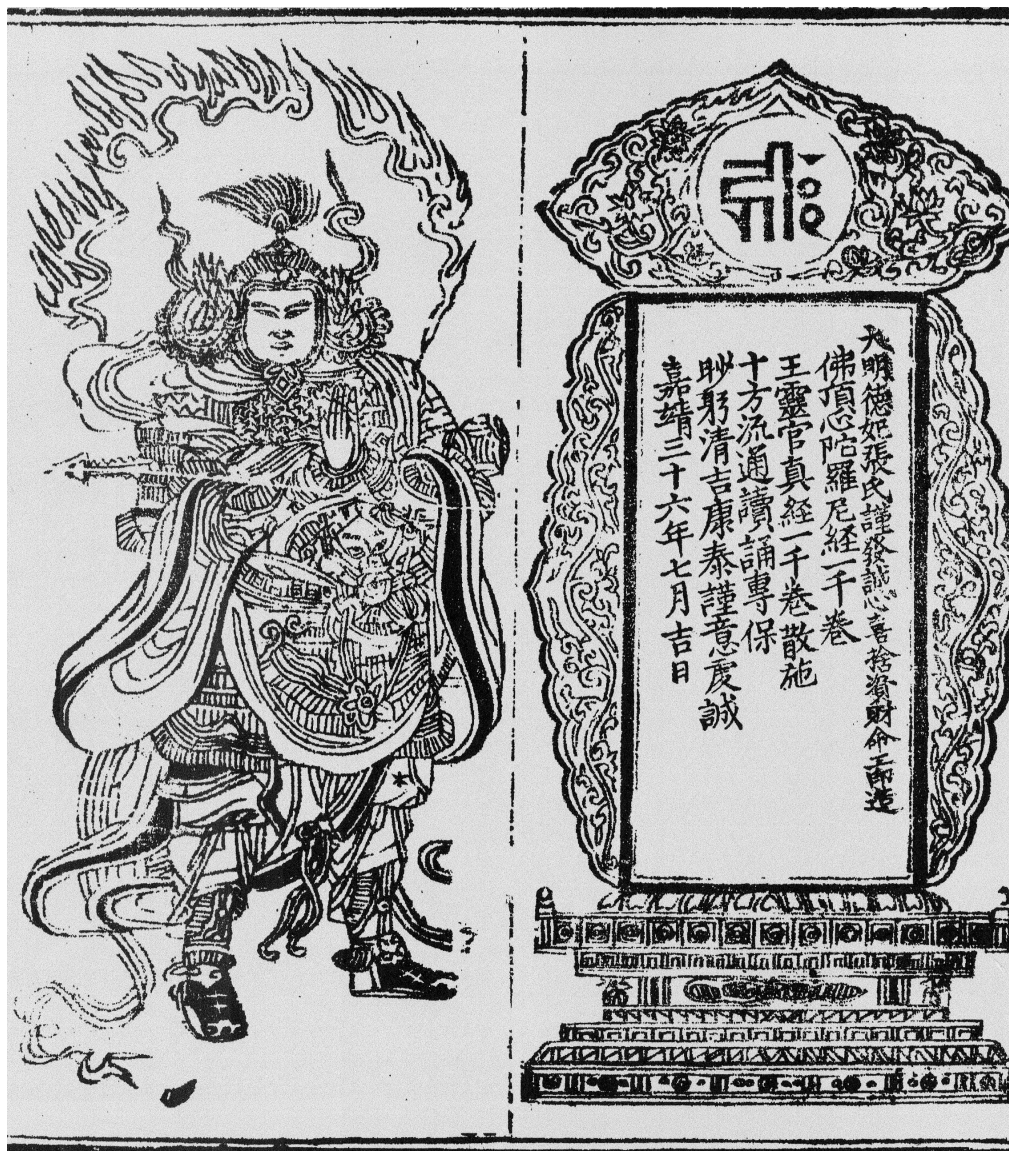 大明德妃張氏謹發誠心喜捨資財命工印造
佛頂心陀羅尼経一千卷
王靈官真経一千卷散施
十方流通讀誦專保
眇躬清吉康泰謹意虔誠
嘉靖三十六年七月吉日